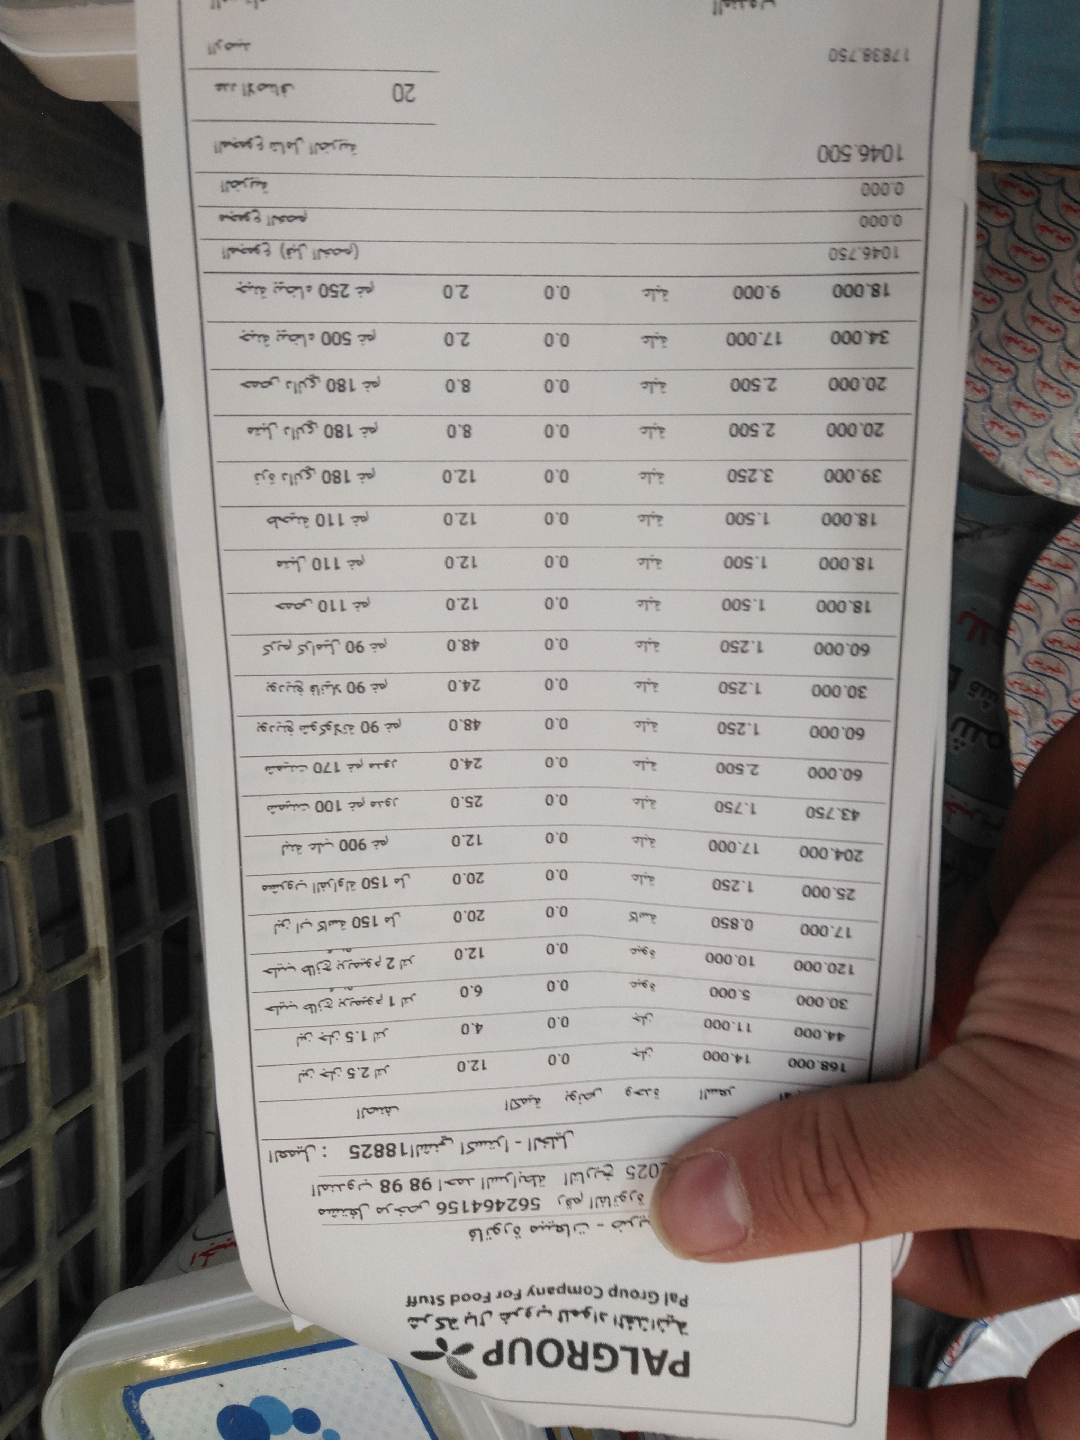 PALGROUP
شركة بال غروب للمواد الغذائية
Pal Group Company For Food Stuff
فاتورة مبيعات - ضريب
مشتغل مرخص 562464156 رقم الفاتورة
المندوب 98 98 احمد السرابطة التاريخ 2025
العميل : 18825الشني اكسترا - الخليل
الصنف الكمية بونص وحدة السعر
لبن جل 2.5 لتر 12.0 0.0 جل 14.000 168.000
لبن جل 1.5 لتر 4.0 0.0 جل 11.000 44.000
حليب طازج بريميوم 1 لتر 6.0 0.0 عبوة 5.000 30.000
حليب طازج بريميوم 2 لتر 12.0 0.0 عبوة 10.000 120.000
لبن اب كاسة 150 مل 20.0 0.0 كاسة 0.850 17.000
مشروب الفراولة 150 مل 20.0 0.0 علبة 1.250 25.000
لبنة علب 900 غم 12.0 0.0 علبة 17.000 204.000
شمينت 100 غم مدور 25.0 0.0 علبة 1.750 43.750
شمينت 170 غم مدور 24.0 0.0 علبة 2.500 60.000
بودينغ شوكولاتة 90 غم 48.0 0.0 علبة 1.250 60.000
بودينغ فانيلا 90 غم 24.0 0.0 علبة 1.250 30.000
كريم كراميل 90 غم 48.0 0.0 علبة 1.250 60.000
حمص 110 غم 12.0 0.0 علبة 1.500 18.000
متبل 110 غم 12.0 0.0 علبة 1.500 18.000
طحينة 110 غم 12.0 0.0 علبة 1.500 18.000
ذرة دالزي 180 غم 12.0 0.0 علبة 3.250 39.000
متبل دالزي 180 غم 8.0 0.0 علبة 2.500 20.000
حمص دالزي 180 غم 8.0 0.0 علبة 2.500 20.000
جبنة بيضاء 500 غم 2.0 0.0 علبة 17.000 34.000
جبنة بيضاء 250 غم 2.0 0.0 علبة 9.000 18.000
المجموع (قبل الخصم) 1046.750
مجموع الخصم 0.000
الضريبة 0.000
المجموع شامل الضريبة 1046.500
عدد الاصناف 20
الرصيد 17838.750
المندوب